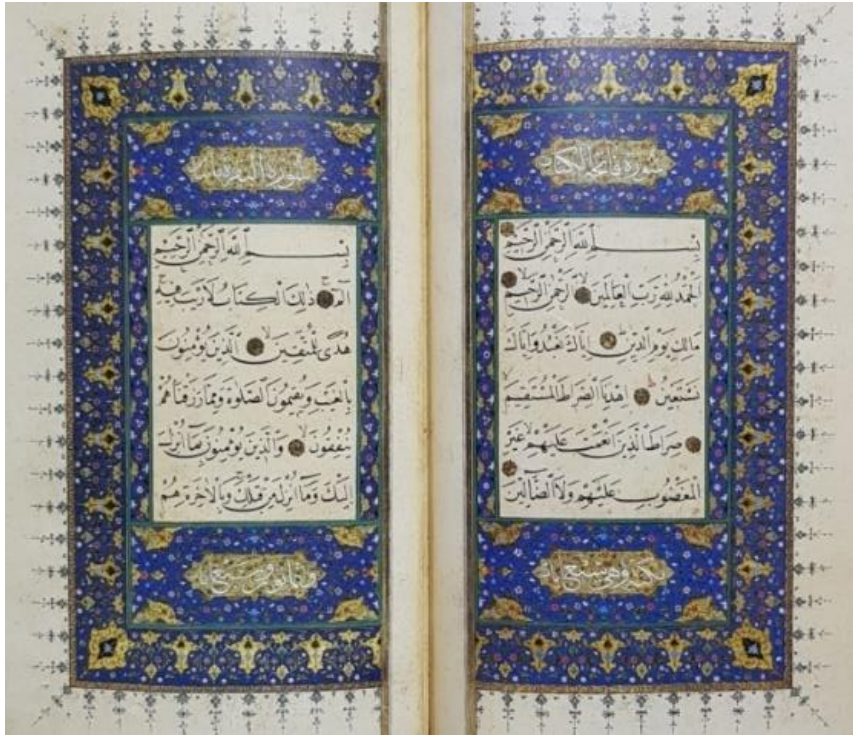 سورة فاتحة الكتاب
بسم الله الرحمن الرحيم
الحمد لله رب العالمين الرحمن الرحيم
مالك يوم الدين اياك نعبد واياك
نستعين اهدنا الصراط المستقيم
صراط الذين انعمت عليهم غير
المغضوب عليهم ولا الضالين
مكية وهي سبع ايات
سورة البقرة
بسم الله الرحمن الرحيم
الم ذلك الكتاب لا ريب فيه
هدى للمتقين الذين يؤمنون
بالغيب ويقيمون الصلوة ومما رزقناهم
ينفقون والذين يؤمنون بما انزل
اليك وما انزل من قبلك وبالاخرة هم